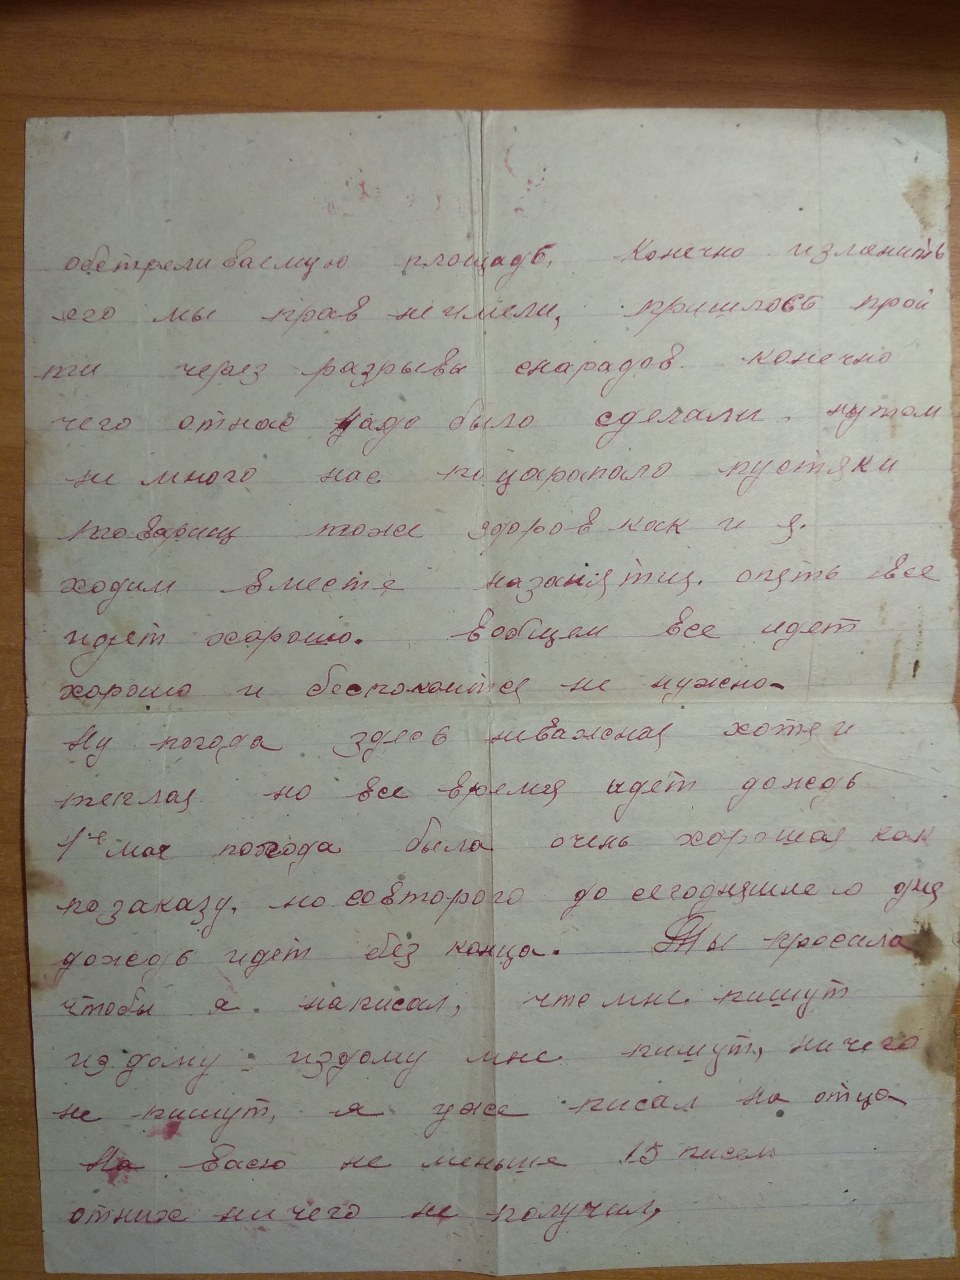 обстреливаемую площадь. Конечно изменить
его мы прав не имели, пришлось прой
ти через разрывы снарядов. конечно
чего отнас надо было сделали. путем
не много нас поцарапало пустяки
товарищ тоже здоров как и я.
ходим вместе назанятия. опять все
идет хорошо. Вообщем все идет
хорошо и беспокоится не нужно-
Ну погода здесь неважная хотя и
теплая но все время идет дождь
1го мая погода была очень хорошая как
позаказу. но совторого до сегодняшнего дня
дождь идет без конца. Ты просила
чтобы я написал, что мне пишут
из дому. издому мне пишут, ничего
не пишут, я уже писал на отца
На Васю не меньше 15 писем
отних ничего не получил,